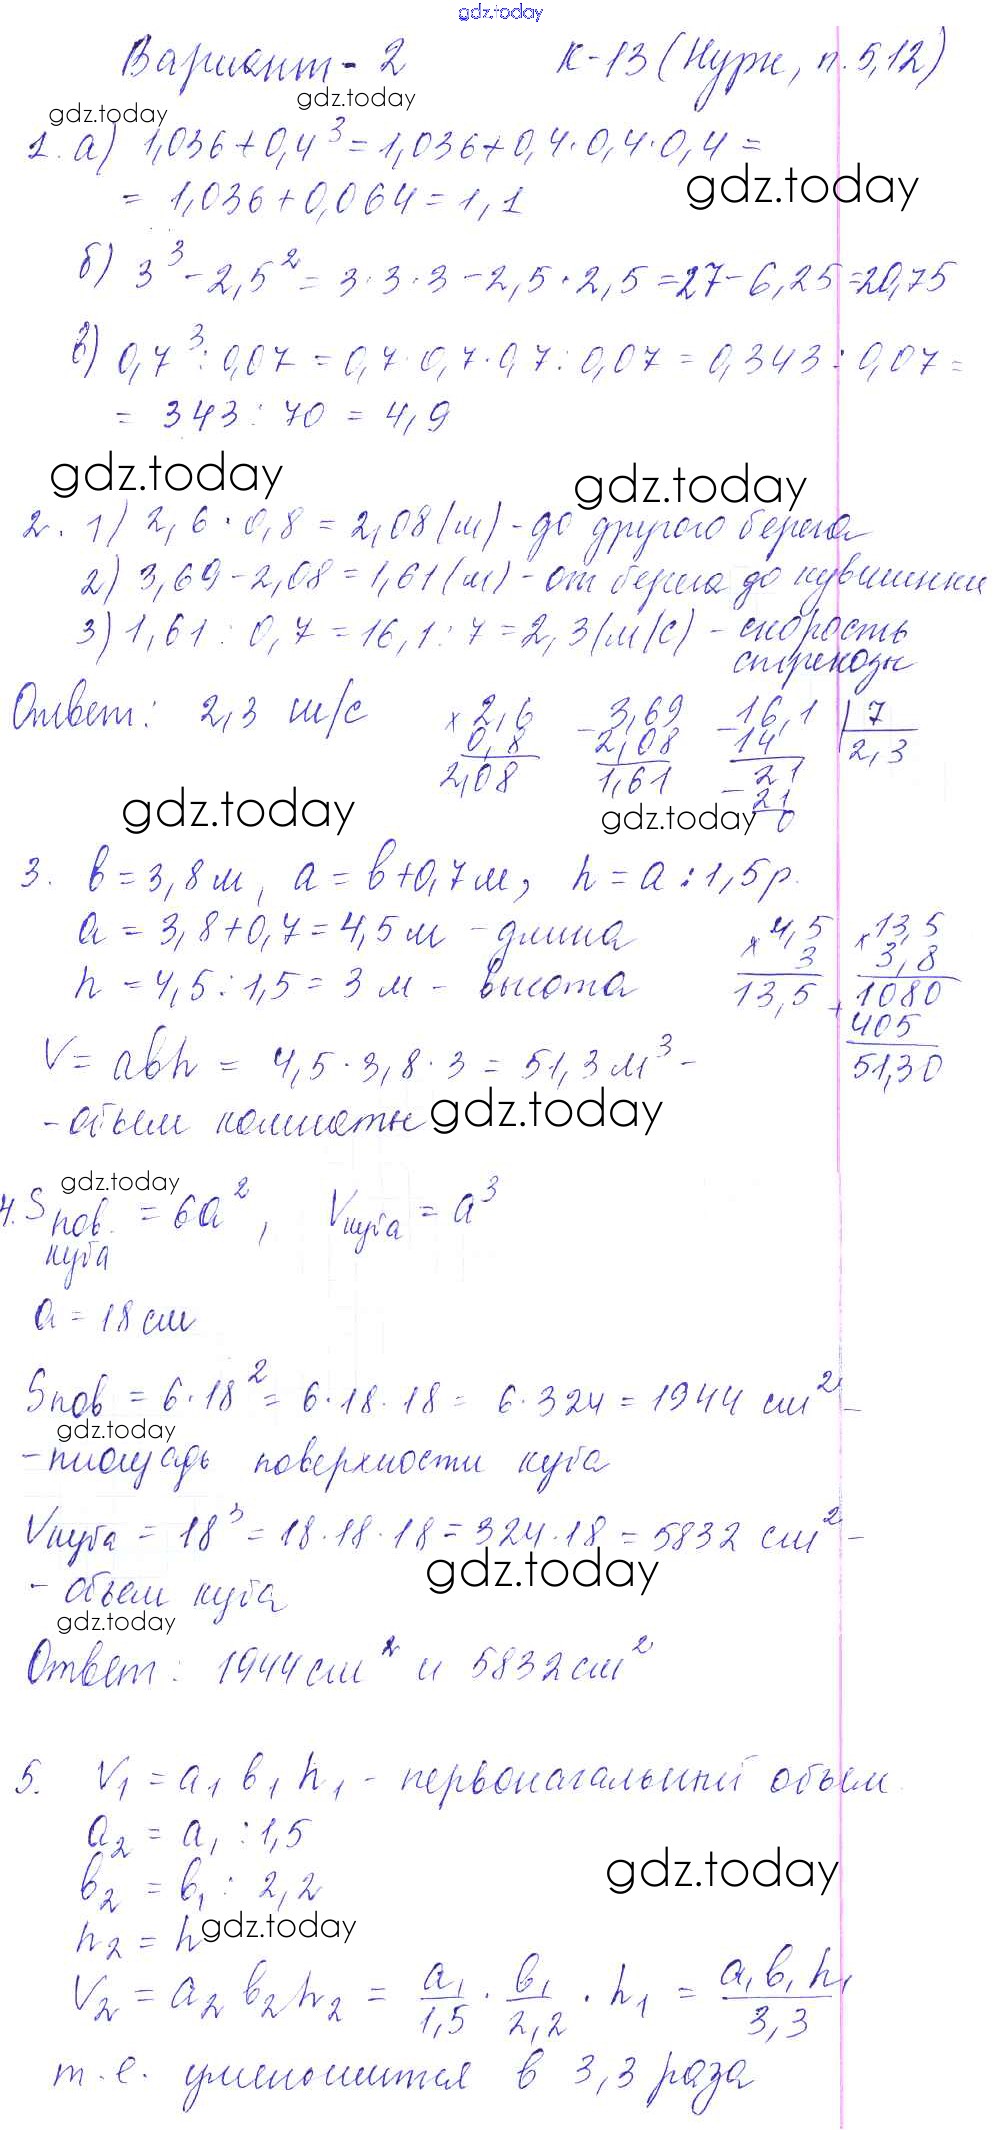 gdz.today
Вариант - 2 К-13 (Нурк, п. 5,12)
gdz.today gdz.today
1. а) 1,036 + 0,4³ = 1,036 + 0,4 · 0,4 · 0,4 =
gdz.today
= 1,036 + 0,064 = 1,1
б) 3³ - 2,5² = 3 · 3 · 3 - 2,5 · 2,5 = 27 - 6,25 = 20,75
в) 0,7³ : 0,07 = 0,7 · 0,7 · 0,7 : 0,07 = 0,343 : 0,07 =
= 343 : 70 = 4,9
gdz.today gdz.today
2. 1) 2,6 · 0,8 = 2,08 (м) - до другого берега
2) 3,69 - 2,08 = 1,61 (м) - от берега до кувшинки
3) 1,61 : 0,7 = 16,1 : 7 = 2,3 (м/с) - скорость
стрекозы
Ответ: 2,3 м/с
× 2,6 - 3,69 - 16,1 | 7
0,8 2,08 14 2,3
2,08 1,61 - 21
21
0
gdz.today gdz.today
3. в = 3,8 м, а = в + 0,7 м, h = а : 1,5 р.
а = 3,8 + 0,7 = 4,5 м - длина
h = 4,5 : 1,5 = 3 м - высота
× 4,5 × 13,5
3 3,8
13,5 + 1080
405
51,30
V = авh = 4,5 · 3,8 · 3 = 51,3 м³ -
- объем комнаты
gdz.today
gdz.today
4. S пов. куба = 6а², V куба = а³
а = 18 см
S пов = 6 · 18² = 6 · 18 · 18 = 6 · 324 = 1944 см² -
gdz.today
- площадь поверхности куба
V куба = 18³ = 18 · 18 · 18 = 324 · 18 = 5832 см² -
gdz.today
- объем куба
gdz.today
Ответ: 1944 см² и 5832 см²
5. V₁ = а₁ в₁ h₁ - первоначальный объем.
а₂ = а₁ : 1,5
gdz.today
в₂ = в₁ : 2,2
h₂ = h
gdz.today
V₂ = а₂ в₂ h₂ = а₁/1,5 · в₁/2,2 · h₁ = а₁ в₁ h₁/3,3
т. е. уменьшится в 3,3 раза